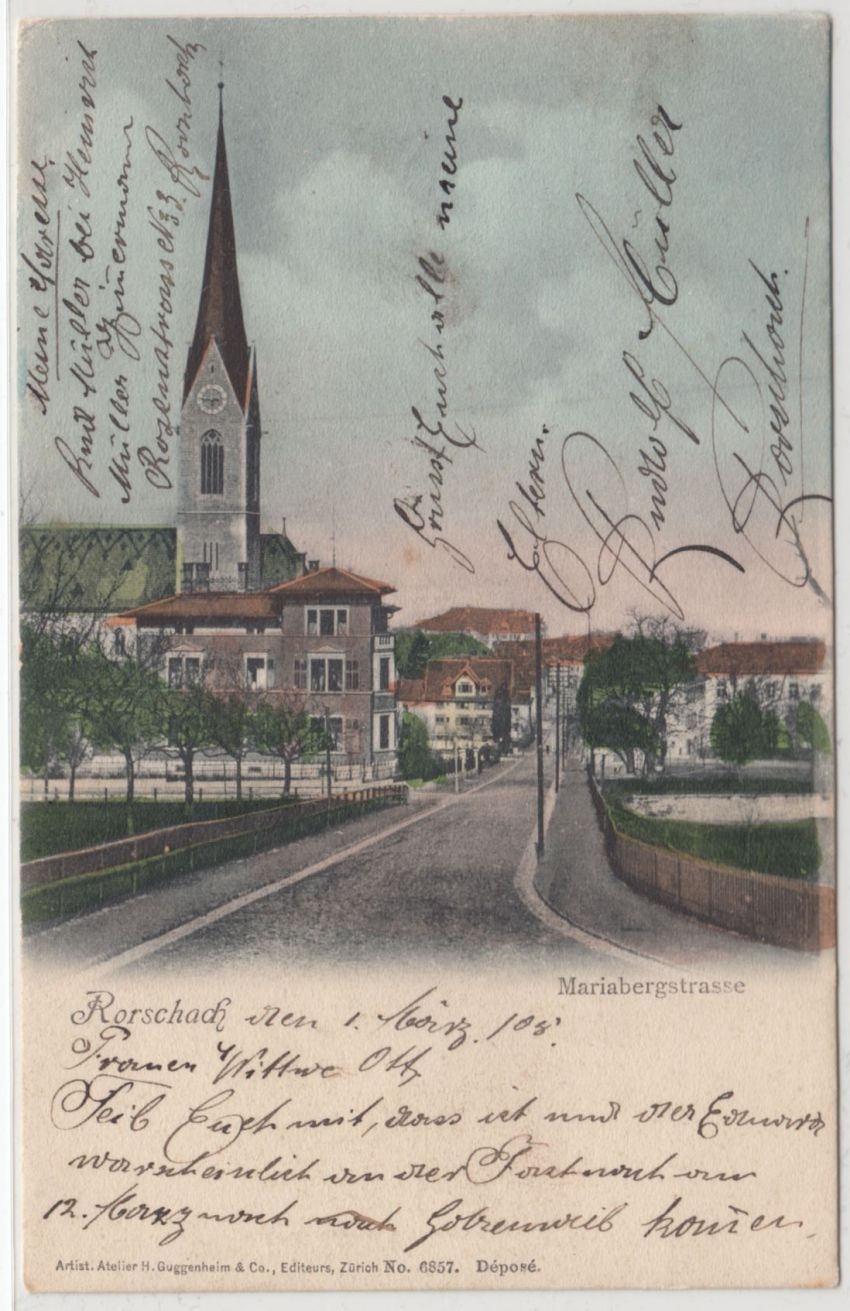 Meine Adresse
Rud Müller bei Heinrich
Müller Zimermann
Rosenstrasse N 33. Rorschach
Grüsst Euch alle meine
Eltern.
Rudolf Müller
Rorschach.
Mariabergstrasse
Rorschach den 1. März. 105.
Frauen Wittwe Ott
Teile Euch mit, dass ich und der Eduard
warscheinlich an der Fastnach am
12. März nach
komen.
Artist. Atelier H. Guggenheim & Co., Editeurs, Zürich No. 6857. Déposé.